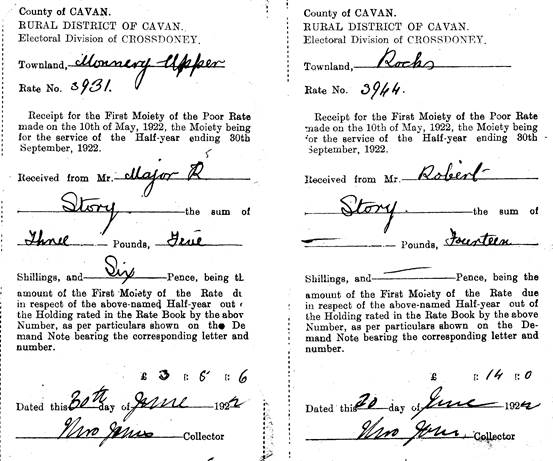 County of CAVAN.
RURAL DISTRICT OF CAVAN.
Electoral Division of CROSSDONEY.
Townland, Monnery Upper
Rate No. 3931.
Receipt for the First Moiety of the Poor Rate
made on the 10th of May, 1922, the Moiety being
for the service of the Half-year ending 30th
September, 1922.
Received from Mr. Major R
Story the sum of
Three Pounds, Five
Shillings, and Six Pence, being th
amount of the First Moiety of the Rate du
in respect of the above-named Half-year out o
the Holding rated in the Rate Book by the abov
Number, as per particulars shown on the De
mand Note bearing the corresponding letter and
number.
£ 3 : 5 : 6
Dated this 30th day of June 1922
Collector
County of CAVAN.
RURAL DISTRICT OF CAVAN.
Electoral Division of CROSSDONEY.
Townland, Rocks
Rate No. 3944.
Receipt for the First Moiety of the Poor Rate
made on the 10th of May, 1922, the Moiety being
for the service of the Half-year ending 30th
September, 1922.
Received from Mr. Robert
Story the sum of
— Pounds, Fourteen
Shillings, and — Pence, being the
amount of the First Moiety of the Rate due
in respect of the above-named Half-year out of
the Holding rated in the Rate Book by the above
Number, as per particulars shown on the De-
mand Note bearing the corresponding letter and
number.
£ : 14 : 0
Dated this 30 day of June 1922
Collector